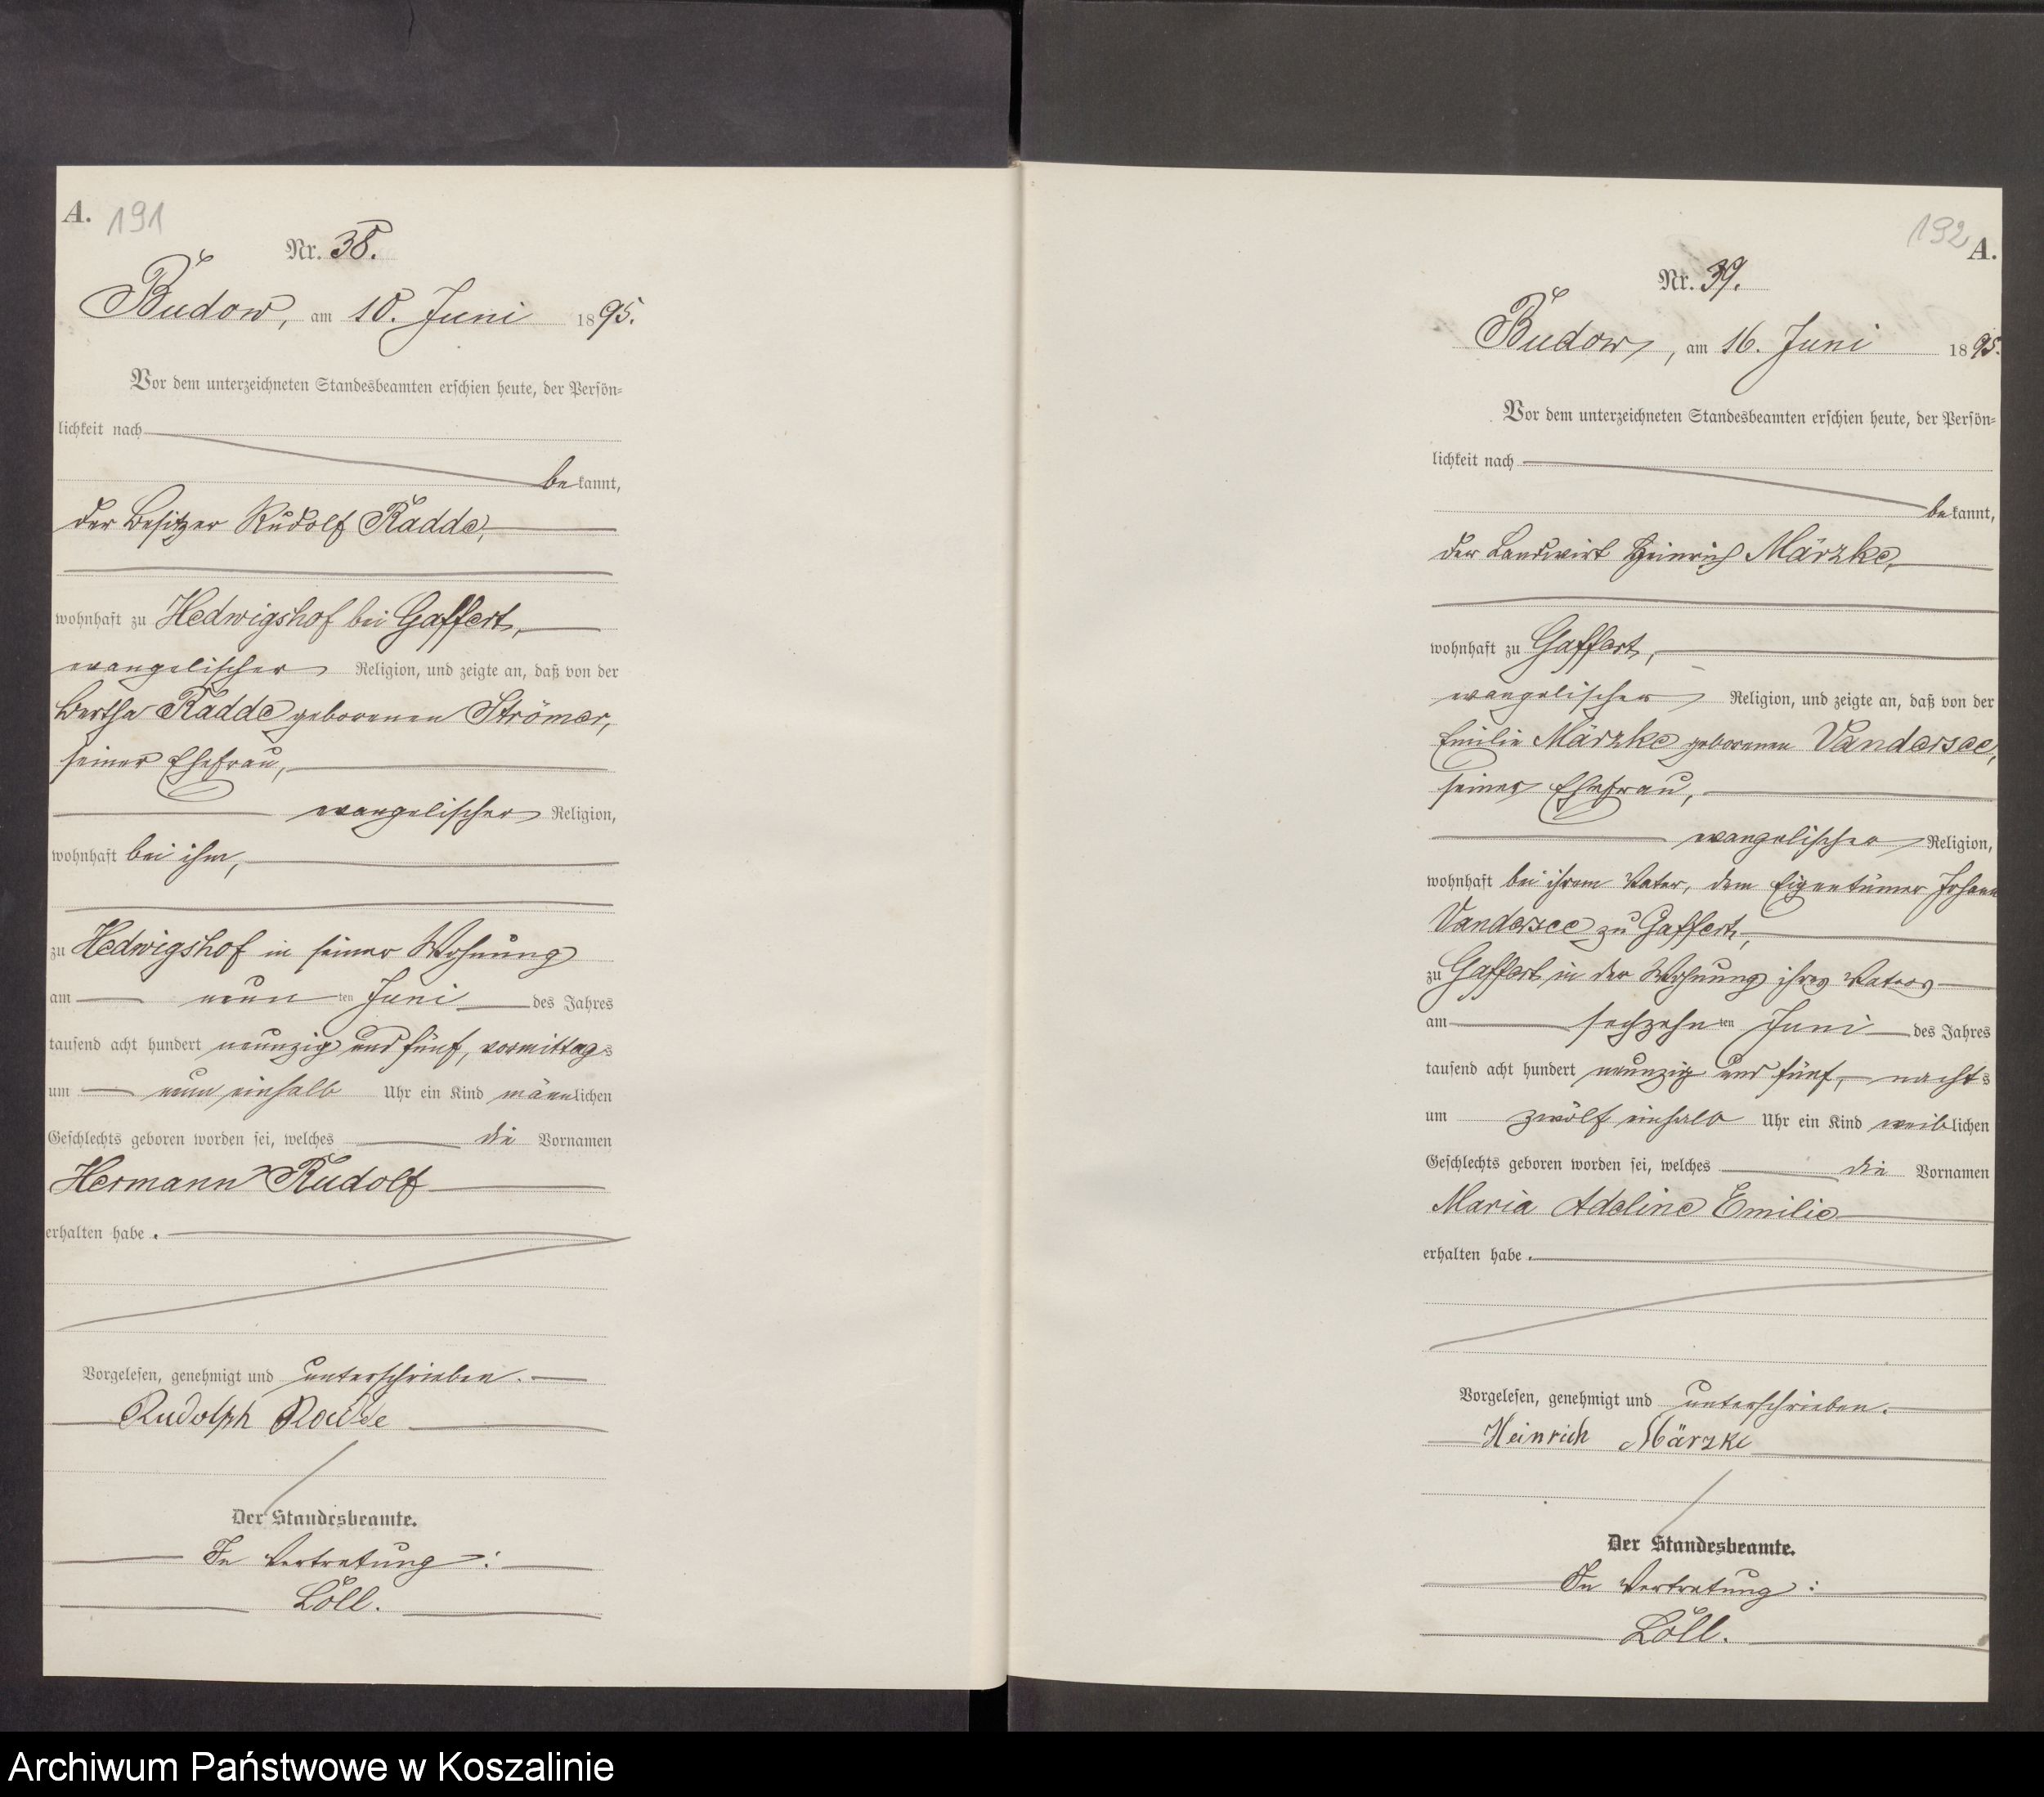 A. 191
Nr. 38.
Budow, am 10. Juni 1895.
Vor dem unterzeichneten Standesbeamten erschien heute, der Persön-
lichkeit nach
bekannt,
der Besitzer Rudolf Radde,
wohnhaft zu Hedwigshof bei Gaffert,
evangelischer Religion, und zeigte an, daß von der
Bertha Radde geborenen Strömer,
seiner Ehefrau,
evangelischer Religion,
wohnhaft bei ihm,
zu Hedwigshof in seiner Wohnung
am neunten Juni des Jahres
tausend acht hundert neunzig und fünf, vormittags
um neun einhalb Uhr ein Kind männlichen
Geschlechts geboren worden sei, welches die Vornamen
Hermann Rudolf
erhalten habe.
Vorgelesen, genehmigt und unterschrieben.
Rudolph Radde
Der Standesbeamte.
In Vertretung:
Löll.
192 A.
Nr. 39.
Budow, am 16. Juni 1895.
Vor dem unterzeichneten Standesbeamten erschien heute, der Persön-
lichkeit nach
bekannt,
der Landwirt Heinrich Märzke,
wohnhaft zu Gaffert,
evangelischer Religion, und zeigte an, daß von der
Emilie Märzke geborenen Vandersee,
seiner Ehefrau,
evangelischer Religion,
wohnhaft bei ihrem Vater, dem Eigentümer Johann
Vandersee zu Gaffert,
zu Gaffert in der Wohnung ihres Vaters
am sechzehnten Juni des Jahres
tausend acht hundert neunzig und fünf, nachts
um zwölf einhalb Uhr ein Kind weiblichen
Geschlechts geboren worden sei, welches die Vornamen
Maria Adeline Emilie
erhalten habe.
Vorgelesen, genehmigt und unterschrieben.
Heinrich Märzke
Der Standesbeamte.
In Vertretung:
Löll.
Archiwum Państwowe w Koszalinie